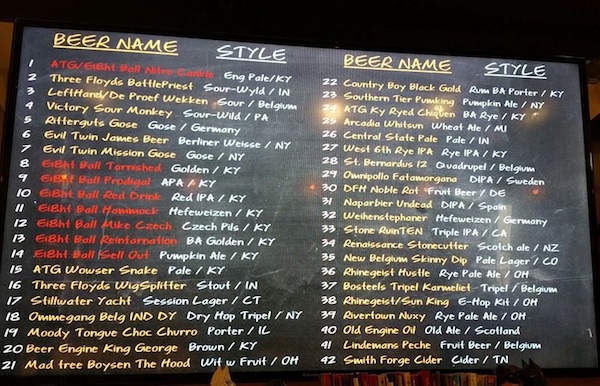 BEER NAME STYLE
1 ATG/Ei8ht Ball Nitro Cookie Eng Pale/KY
2 Three Floyds BattlePriest Sour-Wyld / IN
3 LeftHand/De Proef Wekken Sour / Belgium
4 Victory Sour Monkey Sour-Wild / PA
5 Ritterguts Gose Gose / Germany
6 Evil Twin James Beer Berliner Weisse / NY
7 Evil Twin Mission Gose Gose / NY
8 Ei8ht Ball Tarnished Golden / KY
9 Ei8ht Ball Prodigal APA / KY
10 Ei8ht Ball Red Drink Red IPA / KY
11 Ei8ht Ball Hammock Hefeweizen / KY
12 Ei8ht Ball Mike Czech Czech Pils / KY
13 Ei8ht Ball Reintarnation BA Golden / KY
14 Ei8ht Ball Sell Out Pumpkin Ale / KY
15 ATG Wowser Snake Pale / KY
16 Three Floyds WigSplitter Stout / IN
17 Stillwater Yacht Session Lager / CT
18 Ommegang Belg IND DY Dry Hop Tripel / NY
19 Moody Tongue Choc Churro Porter / IL
20 Beer Engine King George Brown / KY
21 Mad tree Boysen The Hood Wit w Fruit / OH
BEER NAME STYLE
22 Country Boy Black Gold Rum BA Porter / KY
23 Southern Tier Pumking Pumpkin Ale / NY
24 ATG Ky Ryed Chiquen BA Rye / KY
25 Arcadia Whitsun Wheat Ale / MI
26 Central State Pale Pale / IN
27 West 6th Rye IPA Rye IPA / KY
28 St. Bernardus 12 Quadrupel / Belgium
29 Omnipollo Fatamorgana DIPA / Sweden
30 DFH Noble Rot Fruit Beer / DE
31 Naparbier Undead DIPA / Spain
32 Weihenstephaner Hefeweizen / Germany
33 Stone RuinTEN Triple IPA / CA
34 Renaissance Stonecutter Scotch ale / NZ
35 New Belgium Skinny Dip Pale Lager / CO
36 Rhinegeist Hustle Rye Pale Ale / OH
37 Bosteels Tripel Karmeliet Tripel / Belgium
38 Rhinegeist/Sun King E-Hop Kit / OH
39 Rivertown Nuxy Rye Pale Ale / OH
40 Old Engine Oil Old Ale / Scotland
41 Lindemans Peche Fruit Beer / Belgium
42 Smith Forge Cider Cider / TN